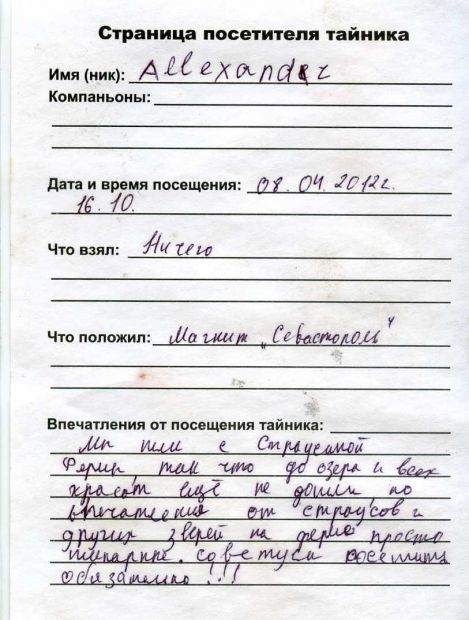 Страница посетителя тайника
Имя (ник): Allexander
Компаньоны:
Дата и время посещения: 08.04.2012г.
16.10.
Что взял: Ничего
Что положил: Магнит „Севастополь"
Впечатления от посещения тайника:
Мы шли с Страусиной
Фермы, так что до озера и всех
красот ещё не дошли, но
впечатления от страусов и
других зверей на ферме просто
шикарные. советуем посетить
обязательно!!!